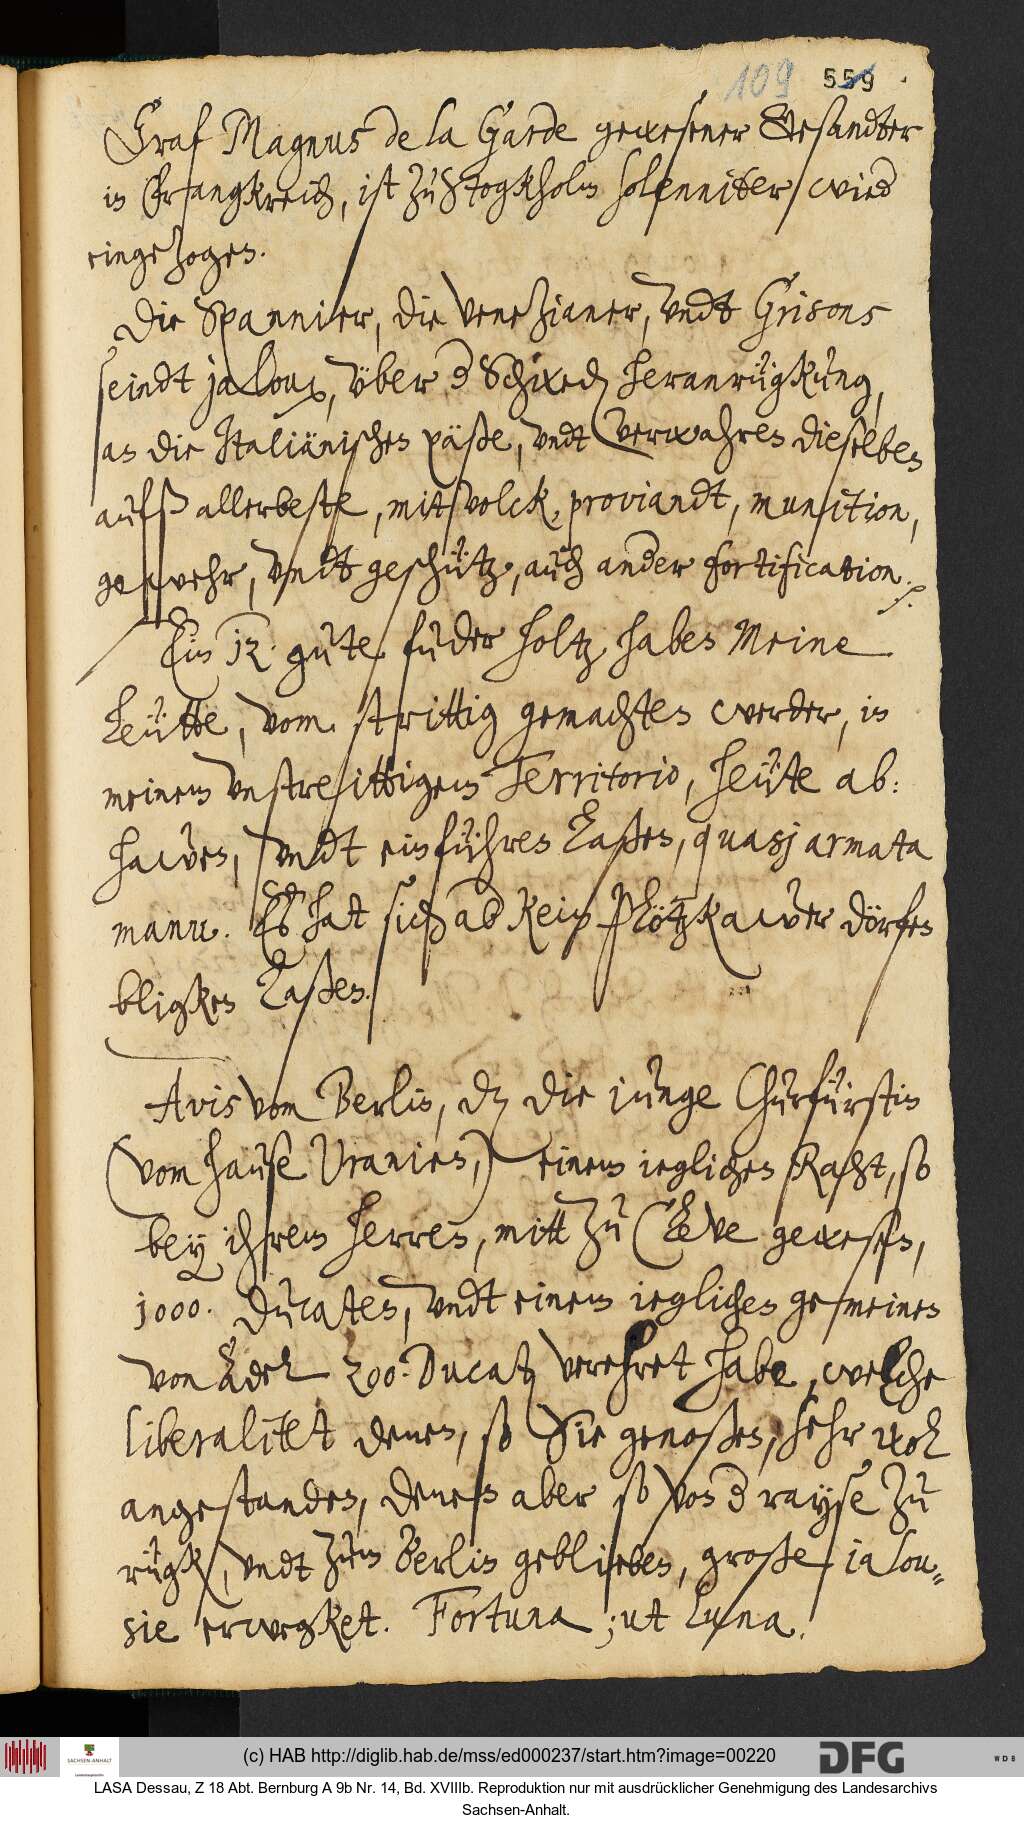 109 559
Graf Magnus de la Garde gewesener Gesandter
in Frangkreich, ist zu Stogkholm solenniter wied
eingezogen.
Die Spannier, die Venezianer, undt Grisons
seindt jaloux, über d Schwed heranrügkung,
an die Italiänischen päße, undt verwahren dieselben
aufs allerbeste, mit volck, proviandt, munition,
gewehr, undt geschütz, auch ander fortification.
Ein 12. gute fuder holtz haben Meine
Leütte, vom strittig gemachten werder, in
meinem unstreittigem Territorio, heüte ab:
hawen, undt einführen laßen, quasj armata
manu. Es hat sich ab kein Plötzkawer dörfen
bligken laßen.
Avis vom Berlin, dz die junge Churfürstin
(vom hause Uranien,) einem ieglichen Raht, so
bey ihrem herren, mitt zu Cleve gewesen,
1000. Ducaten, undt einem ieglichen gemeinen
von Adel 200. Ducatz verehret habe, welche
liberalitet denen, so Sie genoßen, sehr wol
angestanden, denen aber so von d rayse zu
rügk, undt zum Berlin geblieben, große ialou=
sie erwegket. Fortuna; ut Luna.
(c) HAB http://diglib.hab.de/mss/ed000237/start.htm?image=00220
SACHSEN-ANHALT
DFG
WDB
LASA Dessau, Z 18 Abt. Bernburg A 9b Nr. 14, Bd. XVIIIb. Reproduktion nur mit ausdrücklicher Genehmigung des Landesarchivs
Sachsen-Anhalt.